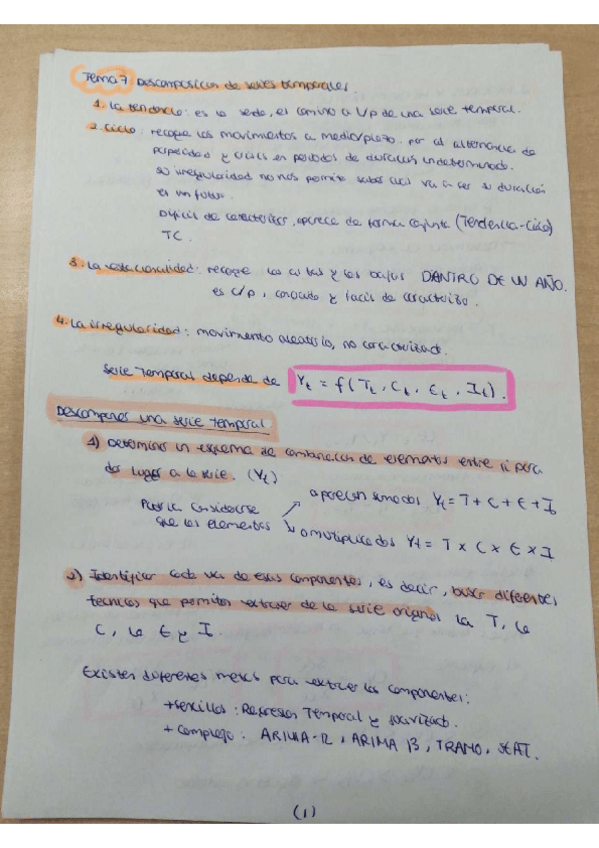 Tema 7 Descomposicion de series temporales
1. La tendencia: es la senda, el camino a l/p de una serie temporal.
2. Ciclo: recoge los movimientos a medio/plazo. por al alternancia de
prosperidad y crisis en periodos de duracion indeterminado.
su irregularidad no nos permite saber cual va a ser su duración
en un futuro.
Dificil de caracterizar, aparece de forma conjunta (Tendencia-Ciclo)
TC.
3. La estacionalidad: recoge las altas y los bajos DANTRO DE UN AÑO.
es c/p, conocido y facil de caracterizar.
4. La irregularidad: movimiento aleatorio, no caracterizad.
Serie temporal depende de Yt = f(Tt, Ct, Et, It).
Descomponer una serie temporal
1) Determinar un esquema de combinacion de elementos entre si para
dar lugar a la serie. (Yt)
Podria considerarse
que los elementos
aparecen sumados Yt = T + C + E + I
o multiplicados Yt = T x C x E x I
2) Identificar cada una de esas componentes, es decir, buscar diferentes
tecnicas que permitan extraer de la serie original la T, le
C, le E y I.
Existen diferentes metodos para extraer las componentes:
+ sencillos: Regresion Temporal y suavizado.
+ complejo: ARIMA-12, ARIMA 13, TRAMO, SEAT.
(1)